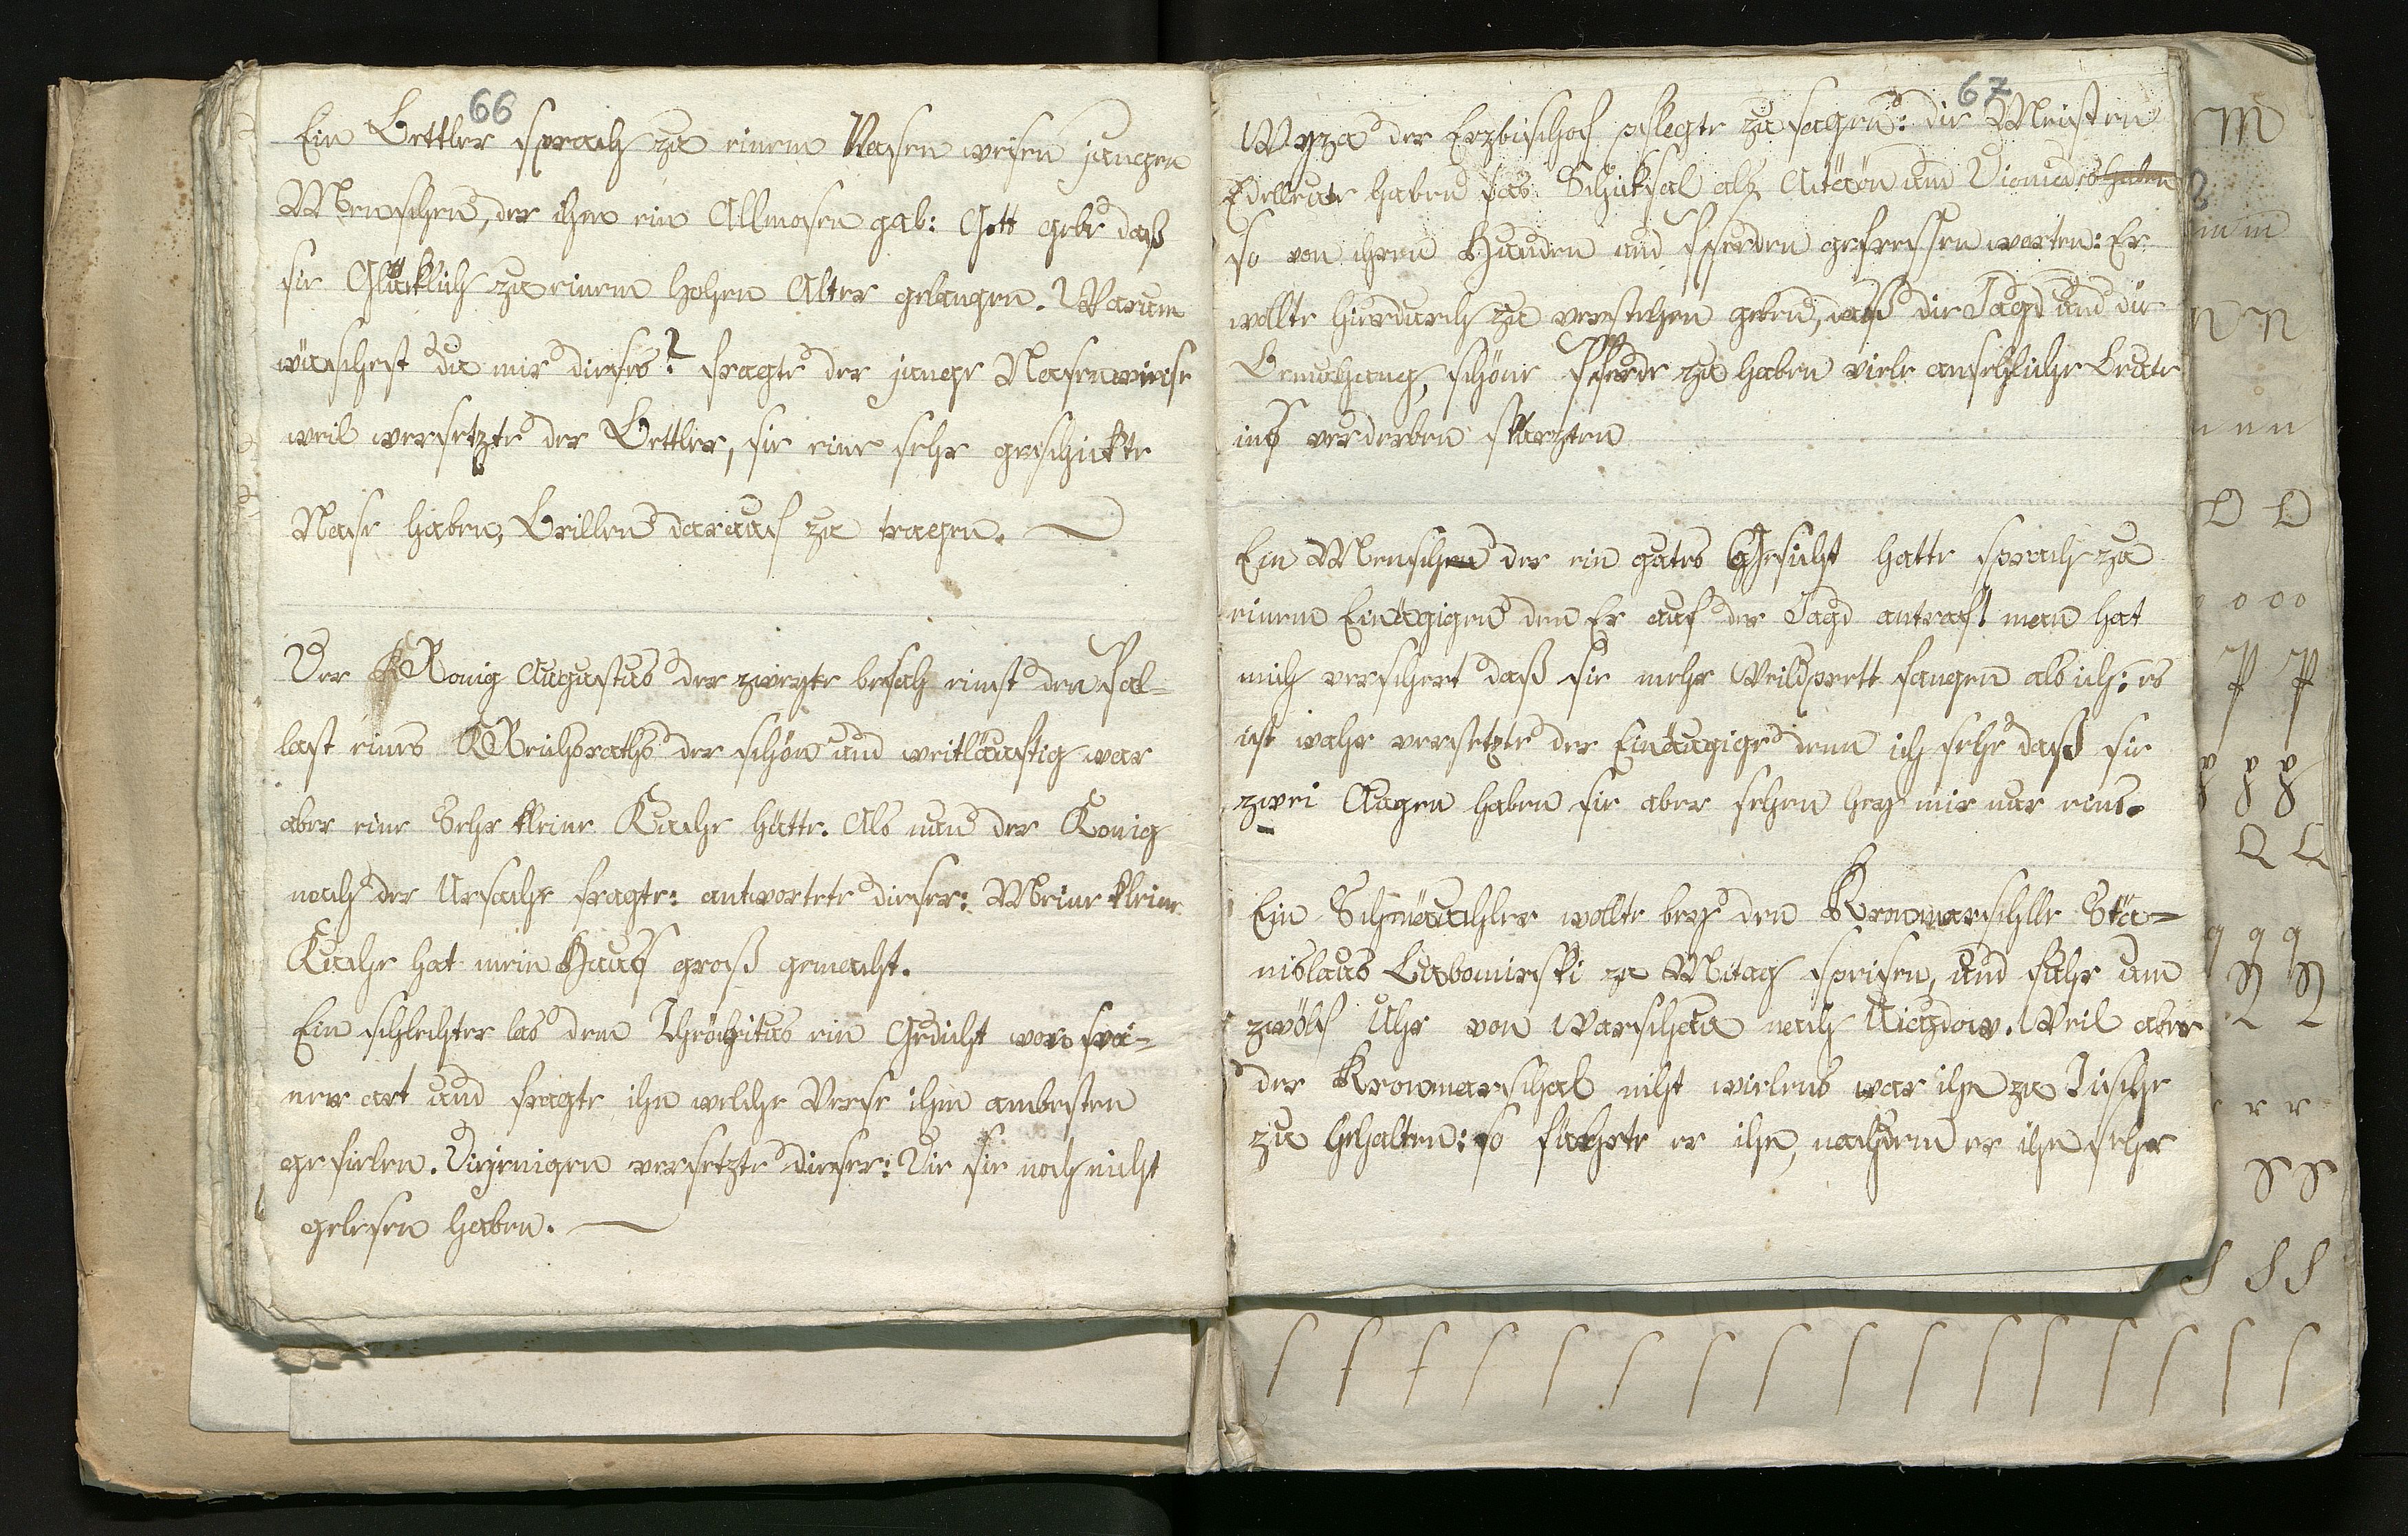 66
Ein Bettler sprach zu einem Nasen weisen jungen
Menschen, der ihm ein Allmosen gab: Gott gebe daß
sie Glüklich zu einem hohen Alter gelangen. Warum
wüschest du mir dieses? fragte der junge Nasenweise
weil versetzte der Bettler, sie eine sehr geschickte
Nase haben, Brillen darauf zu tragen.
Der Konig Augustus der zweyte besah einst den Pal-
last eines Reichsraths der schön und weitläuftig war
aber eine Sehr kleine Kuche hätte. Als nun der Konig
nach der Ursache fragte: antwortete dieser: Meine kleine
Kuche hat mein Hauß groß gemacht.
Ein schlechter las dem Theokritus ein Gedicht vor sei-
ner art und fragte ihn welche Verse ihm ambesten
gefielen. Diejenigen versetzte dieser: Die sie noch nicht
gelesen haben.
67
Wyza der Erzbischof pflegte zu sagen: die Meisten
Edelleute haben das Schiksal als Actäon und Diomedes haben
so von ihren Hunden und Pferden gefressen worten: Er
wollte hierdurch zu verstehen geben, daß die Jagd und die
Bemuhung, schöne Pferde zu haben viele ansehliche Leute
ins verderben sturzten
Ein Menschen der ein gutes Gesicht hatte sprach zu
einem Einäugigen den Er auf der Jagd antraf! man hat
mich versichert daß sie mehr Wildprett fangen als ich: es
ist wahr versetzte der Einäugige denn ich sehe daß sie
zwei Augen haben sie aber sehen bey mir nur eins.
Ein wollte bey den Kronmarschlle Sta-
nislaus Lubomirski zu Mitag speisen, und fuhr um
zwölf Uhr von Warschau nach Uiazdow. Weil aber
der Kronmarschal nicht wielens war ihn zu Tische
zu behalten: so fuhrte er ihn, nachdem er ihn sehr
M
m m
n n
n n n
O O
o o o o
P P
p p p
Q Q
q q q
R R
r r r
S S
S S S
ſ ſ ſ ſ ſ ſ ſ ſ ſ ſ ſ ſ ſ ſ ſ ſ